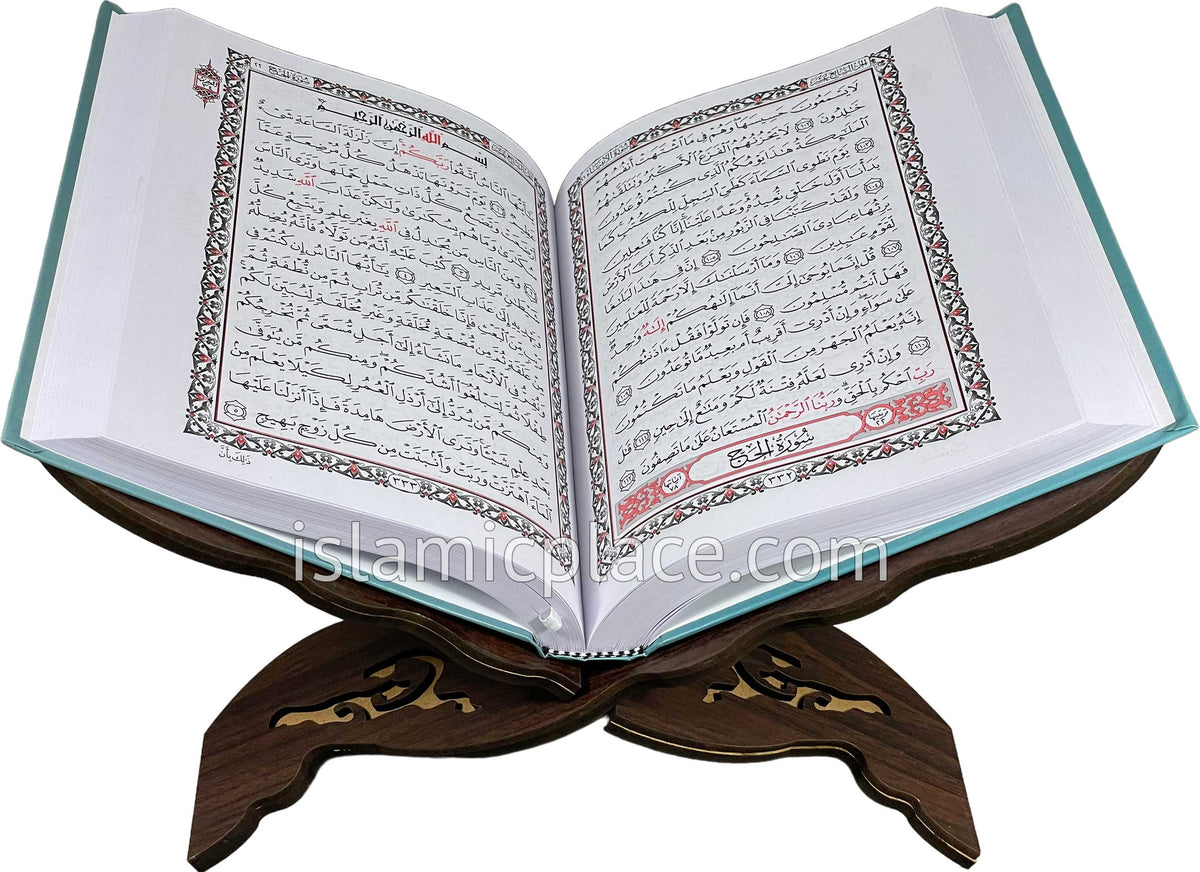 الجزء السابع عشر
لَا يَسْمَعُونَ حَسِيسَهَا وَهُمْ فِي مَا ٱشْتَهَتْ أَنفُسُهُمْ
خَٰلِدُونَ ١٠٢ لَا يَحْزُنُهُمُ ٱلْفَزَعُ ٱلْأَكْبَرُ وَتَتَلَقَّىٰهُمُ
ٱلْمَلَٰٓئِكَةُ هَٰذَا يَوْمُكُمُ ٱلَّذِي كُنتُمْ تُوعَدُونَ
١٠٣ يَوْمَ نَطْوِي ٱلسَّمَآءَ كَطَيِّ ٱلسِّجِلِّ لِلْكُتُبِ كَمَا
بَدَأْنَآ أَوَّلَ خَلْقٍ نُّعِيدُهُۥ وَعْدًا عَلَيْنَآ إِنَّا كُنَّا فَٰعِلِينَ
١٠٤ وَلَقَدْ كَتَبْنَا فِي ٱلزَّبُورِ مِنۢ بَعْدِ ٱلذِّكْرِ أَنَّ ٱلْأَرْضَ
يَرِثُهَا عِبَادِيَ ٱلصَّٰلِحُونَ ١٠٥ إِنَّ فِي هَٰذَا لَبَلَٰغًا
لِّقَوْمٍ عَٰبِدِينَ ١٠٦ وَمَآ أَرْسَلْنَٰكَ إِلَّا رَحْمَةً لِّلْعَٰلَمِينَ
١٠٧ قُلْ إِنَّمَا يُوحَىٰٓ إِلَيَّ أَنَّمَآ إِلَٰهُكُمْ إِلَٰهٌ وَٰحِدٌ
فَهَلْ أَنتُم مُّسْلِمُونَ ١٠٨ فَإِن تَوَلَّوْا۟ فَقُلْ ءَاذَنتُكُمْ
عَلَىٰ سَوَآءٍ وَإِنْ أَدْرِيٓ أَقَرِيبٌ أَم بَعِيدٌ مَّا تُوعَدُونَ ١٠٩
إِنَّهُۥ يَعْلَمُ ٱلْجَهْرَ مِنَ ٱلْقَوْلِ وَيَعْلَمُ مَا تَكْتُمُونَ
١١٠ وَإِنْ أَدْرِي لَعَلَّهُۥ فِتْنَةٌ لَّكُمْ وَمَتَٰعٌ إِلَىٰ حِينٍ ١١١ قَٰلَ
رَبِّ ٱحْكُم بِٱلْحَقِّ وَرَبُّنَا ٱلرَّحْمَٰنُ ٱلْمُسْتَعَانُ عَلَىٰ مَا تَصِفُونَ ١١٢
سُورَةُ الحَجّ
آياتها ٧٨
٣٣٢
سورة الحج ٢٢
بِسْمِ ٱللَّهِ ٱلرَّحْمَٰنِ ٱلرَّحِيمِ
ٱلنَّاسُ ٱتَّقُوا۟ رَبَّكُمْ إِنَّ زَلْزَلَةَ ٱلسَّاعَةِ شَيْءٌ
يَوْمَ تَرَوْنَهَا تَذْهَلُ كُلُّ مُرْضِعَةٍ عَمَّآ
وَتَضَعُ كُلُّ ذَاتِ حَمْلٍ حَمْلَهَا وَتَرَى ٱلنَّاسَ
سُكَٰرَىٰ وَمَا هُم بِسُكَٰرَىٰ وَلَٰكِنَّ عَذَابَ ٱللَّهِ شَدِيدٌ
ٱلنَّاسِ مَن يُجَٰدِلُ فِي ٱللَّهِ بِغَيْرِ عِلْمٍ وَيَتَّبِعُ كُلَّ
مَّرِيدٍ ٣ كُتِبَ عَلَيْهِ أَنَّهُۥ مَن تَوَلَّاهُ فَأَنَّهُۥ يُضِلُّهُۥ
وَيَهْدِيهِ إِلَىٰ عَذَابِ ٱلسَّعِيرِ ٤ يَٰٓأَيُّهَا ٱلنَّاسُ إِن كُنتُمْ فِي
مِّنَ ٱلْبَعْثِ فَإِنَّا خَلَقْنَٰكُم مِّن تُرَابٍ ثُمَّ مِن نُّطْفَةٍ ثُمَّ
مِنْ عَلَقَةٍ ثُمَّ مِن مُّضْغَةٍ مُّخَلَّقَةٍ وَغَيْرِ مُخَلَّقَةٍ لِّنُبَيِّنَ لَكُمْ
وَنُقِرُّ فِي ٱلْأَرْحَامِ مَا نَشَآءُ إِلَىٰٓ أَجَلٍ مُّسَمًّى ثُمَّ نُخْرِجُكُمْ
طِفْلًا ثُمَّ لِتَبْلُغُوٓا۟ أَشُدَّكُمْ وَمِنكُم مَّن يُتَوَفَّىٰ
وَمِنكُم مَّن يُرَدُّ إِلَىٰٓ أَرْذَلِ ٱلْعُمُرِ لِكَيْلَا يَعْلَمَ مِنۢ
بَعْدِ عِلْمٍ شَيْـًٔا وَتَرَى ٱلْأَرْضَ هَامِدَةً فَإِذَآ أَنزَلْنَا عَلَيْهَا
ٱلْمَآءَ ٱهْتَزَّتْ وَرَبَتْ وَأَنۢبَتَتْ مِن كُلِّ زَوْجٍۭ بَهِيجٍ ٥
ذَٰلِكَ بِأَنَّ
٣٣٣
islamicplace.com